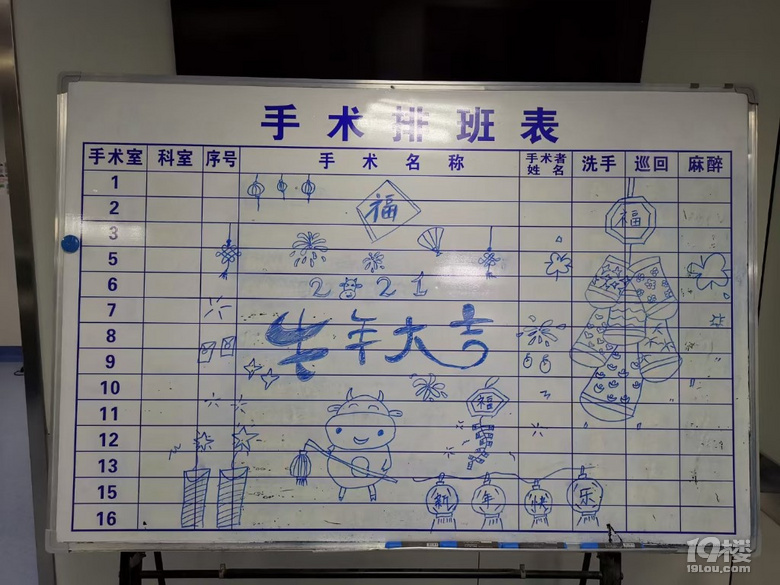 手术排班表
手术室 科室 序号 手术名称 手术者姓名 洗手 巡回 麻醉
1
2
福
福
3
5
6
2021
7
牛年大吉
8
9
10
11
福
12
13
15
新年快乐
16
19楼
19lou.com